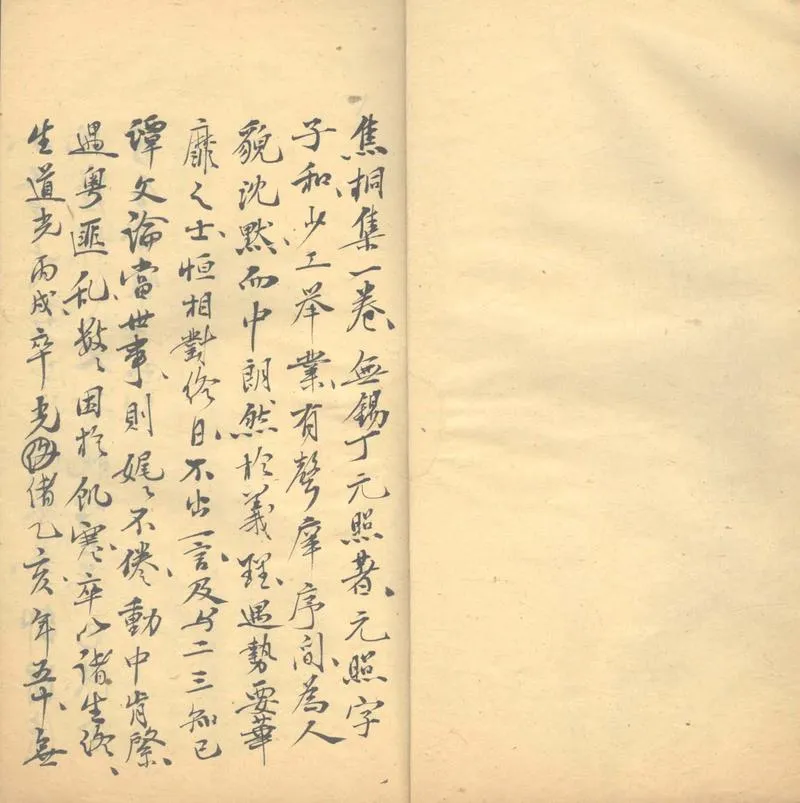 焦桐集一卷、無錫丁元照著、元照字
子和、少工举業、有聲庠序间、為人
貌沈黙而中朗然於義理、遇勢要華
靡之士、恒相對终日、不出一言、及与二三知己
譚文論當世事、則娓〻不倦、動中肯綮、
遇粤匪乱、数〻困於飢寒、卒以诸生终、
生道光丙戌、卒光緒乙亥、年五十、無